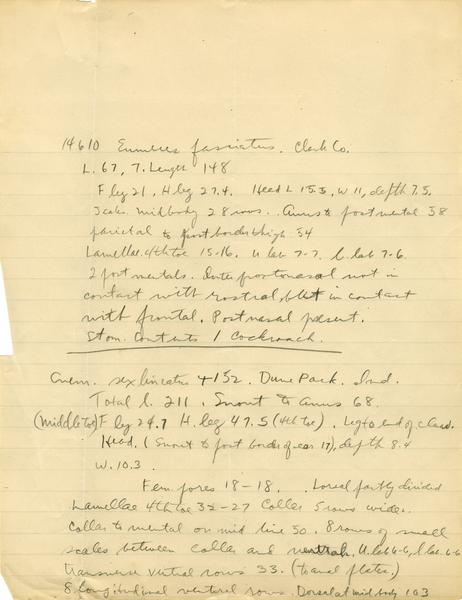 14610 Eumeces fasciatus. Clark Co.
L. 67, T. Length 148
F leg 21, H. leg 27.4. Head L 15.5, W 11, depth 7.5,
Scales midbody 28 rows. Anus to postmental 58
parietal to post border thigh 54
Lamellae 4th toe 15-16. U lab 7-7, L. lab 7-6.
2 post mentals. Internasal not in
contact with rostral, but in contact
with frontal. Postnasal present.
Stom. Contents 1 Cockroach.
Cnem. sexlineatus 4152. Dune Park. Ind.
Total L. 211. Snout to anus 68.
(Middle toe) F leg 24.7 H. leg 47.5 (4th toe). Leg to end of claw.
Head. (Snout to post border of ear 17), depth 8.4
W. 10.3.
Fem. pores 18-18. Loreal partly divided
Lamellae 4th toe 32-27 Collar 5 rows wide.
Collar to mental on mid line 50. 8 rows of small
scales between collar and ventrals. U. lab 6-6, L. lab. 6-6
transverse ventral rows 33. (to anal plates.)
8 longitudinal ventral rows. Dorsal at mid body 103